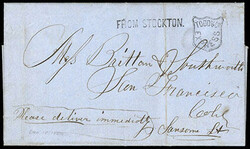 FROM STOCKTON.
Mess Britton &
San Francisco
Cal
Please deliver immediately
Sansome St